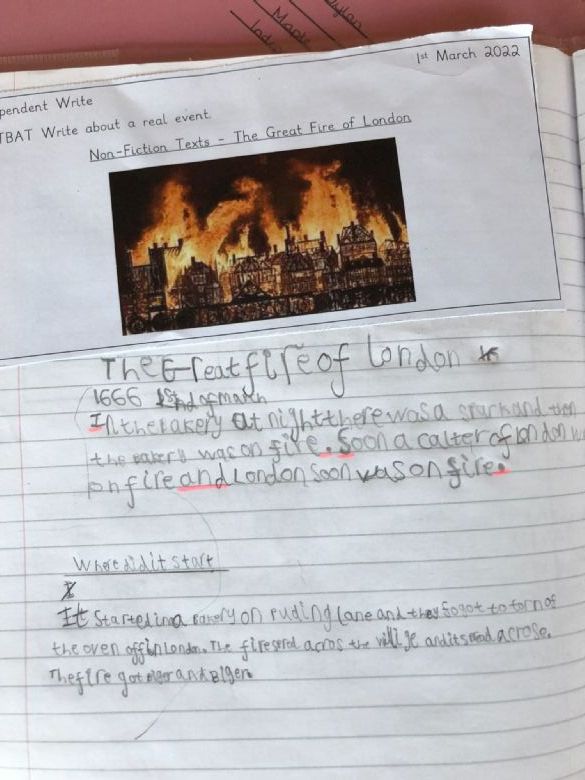 Dylan
1st March 2022
pendent Write
TBAT Write about a real event.
Non-Fiction Texts - The Great Fire of London
The Great fire of London
1666 of march
In the bakery at night there was a spark and then
the bakery was on fire. Soon a calter of london w
on fire and London soon was on fire.
Where did it start
It Started in a bakery on puding lane and they fogot to torn of
the oven off in London. The fire spred acros the villige and it spred acrose.
The fire got biger and Biger.